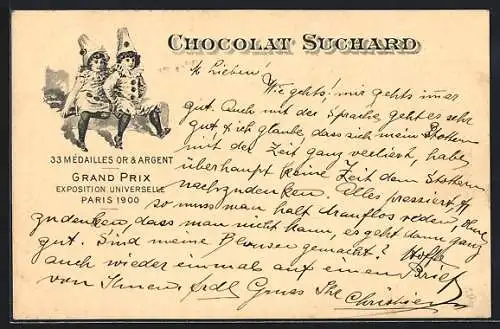 CHOCOLAT SUCHARD
33 MÉDAILLES OR & ARGENT
GRAND PRIX
EXPOSITION UNIVERSELLE
PARIS 1900
M Lieben!
Wie gehts! mir gehts imer
gut. Auch mit der Sprache geht es sehr
gut & ich glaube, dass sich mein Stottern
mit der Zeit ganz verliert, habe
überhaupt keine Zeit dem Stottern
nachzudenken. Alles pressiert &
so muss man halt drauflos reden, ohne
zudenken, dass man nicht kann, es geht dann ganz
gut. Sind meine Blousen gemacht? Hoffe
auch wieder einmal auf einen Brief
von Ihnen frdl Gruss Ihr